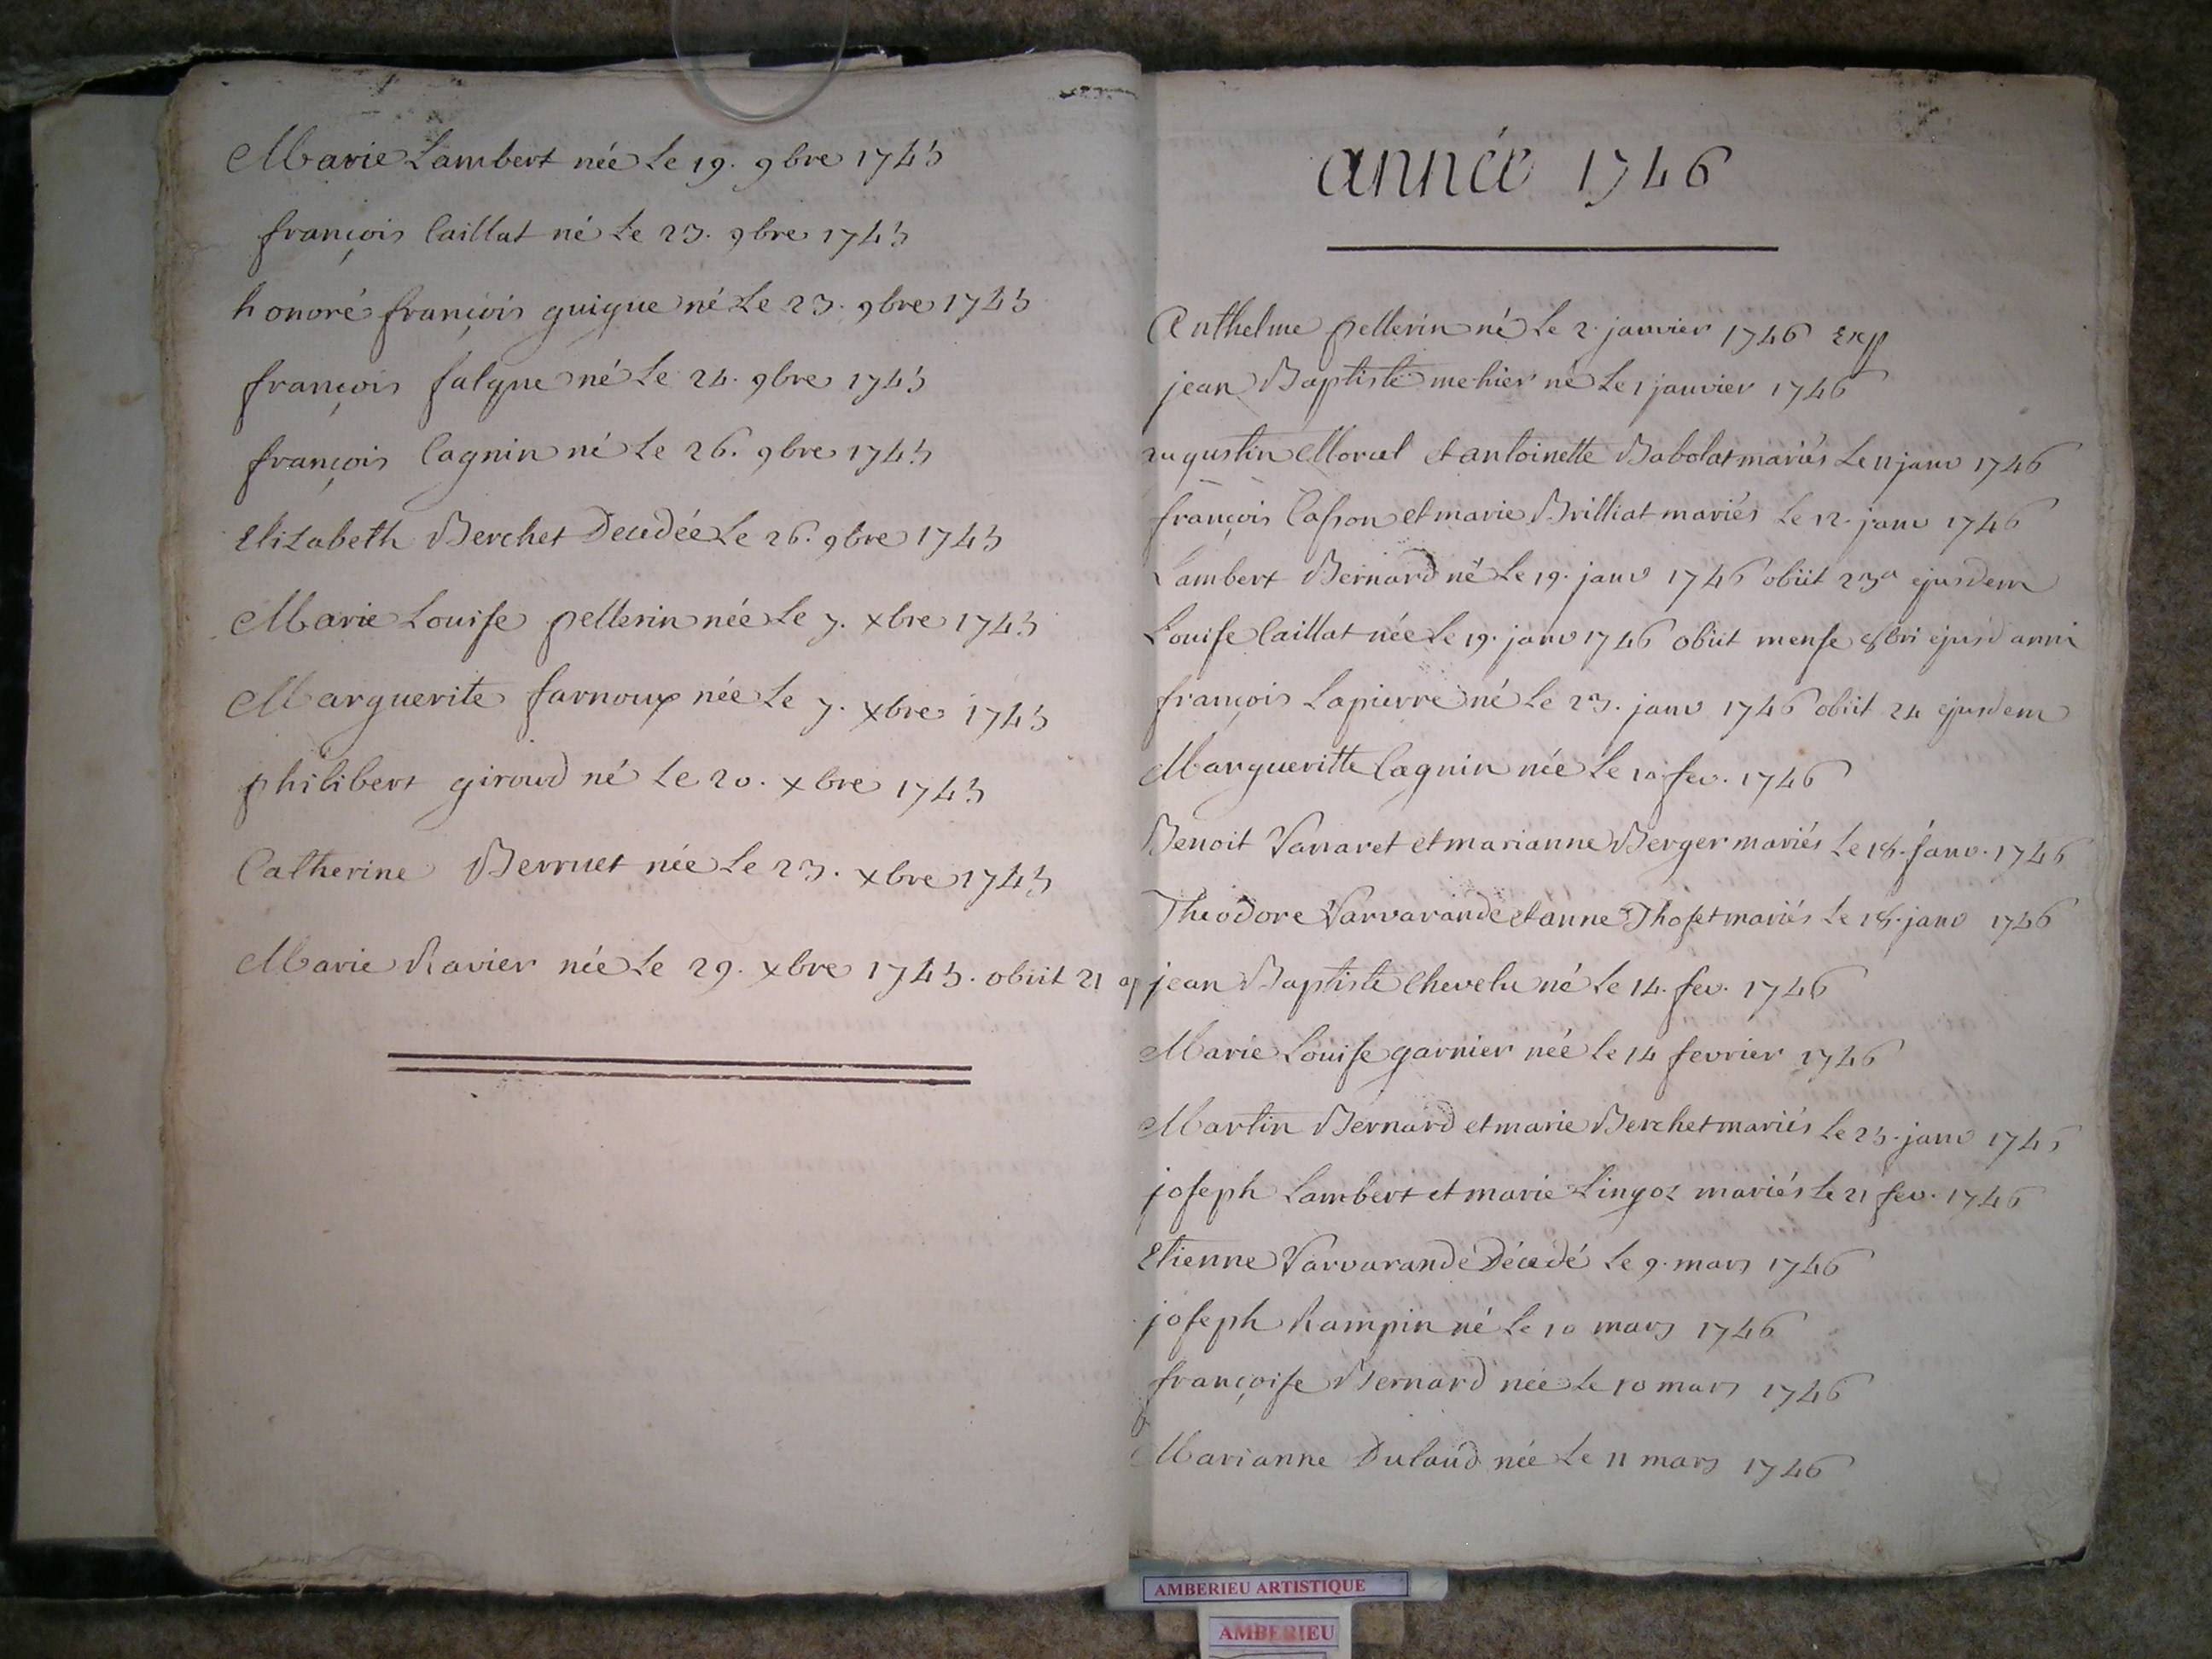 Marie Lambert née Le 19. 9bre 1745
françois Caillat né Le 23. 9bre 1745
honoré françois guigue né Le 23. 9bre 1745
françois falque né Le 24. 9bre 1745
françois Cagnin né Le 26. 9bre 1745
Elizabeth Berchet Decedée Le 26. 9bre 1745
Marie Louise pellerin née Le 7. xbre 1745
Marguerite farnoux née Le 7. xbre 1745
philibert giroud né Le 20. xbre 1745
Catherine Berruet née Le 23. xbre 1745
Marie Ravier née Le 29. xbre 1745. obiit 21
année 1746
Anthelme pellerin né Le 2. janvier 1746 Exp
jean Baptiste mehier né Le 1 janvier 1746
augustin Morcel et antoinette Babolat mariés Le 11 janv 1746
françois Casson et marie Brilliat mariés Le 12. janv 1746
Lambert Bernard né Le 19. janv 1746 obiit 23a ejusdem
Louise Caillat née Le 19. janv 1746 obiit mense 8bri ejusd anni
françois Lapierre né Le 23. janv 1746 obiit 24 ejusdem
Margueritte Cagnin née Le 10 fev. 1746
Benoit Vanaret et marianne Berger mariés Le 18. janv. 1746
Theodore Varvarande et anne Thoset mariés Le 18. janv 1746
jean Baptiste Chevelu né Le 14. fev. 1746
Marie Louise garnier née Le 14 fevrier 1746
Martin Bernard et marie Berchet mariés Le 25. janv 1746
joseph Lambert et marie Lingoz mariés Le 21 fev. 1746
Etienne Varvarande Décedé Le 9. mars 1746
joseph Rampin né Le 10 mars 1746
françoise Bernard née Le 10 mars 1746
Marianne Dulaud née Le 11 mars 1746
AMBERIEU ARTISTIQUE
AMBERIEU